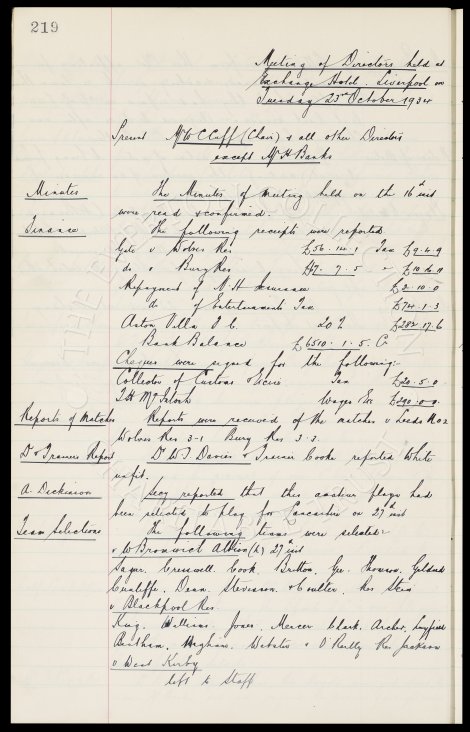 219
Meeting of Directors held at
Exchange Hotel. Liverpool on
Tuesday 23rd October 1934
Present Mr W C Cuff (Chair) & all other Directors
except Mr H Banks
Minutes The Minutes of meeting held on the 16th inst
were read & confirmed.
Finance The following receipts were reported
Gate v Wolves Res £56. 14. 1 Tax £9. 4. 9
do v Bury Res 7. 5 " £10. 16. 11
Repayment of N. H. Insurance £2. 10. 0
do of Entertainments Tax £74. 1. 3
Aston Villa F. C. 20% £282. 17. 6
Bank Balance £6510. 1. 5. Cr
Cheques were signed for the following:-
Collector of Customs & Excise Tax £20. 5. 0
T H McIntosh Wages Etc £290. 0. 0
Reports of Matches Reports were received of the matches v Leeds
Wolves Res 3-1 Bury Res 3. 3.
Dr & Trainers Report Dr W J Davies & Trainer Cooke reported White
unfit.
A. Dickinson Secy reported that this amateur player had
been selected to play for Lancashire on 27th inst
Team Selections The following teams were selected:-
v W Bromwich Albion (h) 27th inst
Sagar. Cresswell. Cook. Britton. Gee. Thomson. Geldard
Cunliffe. Dean. Stevenson. & Coulter. Res Stein
v Blackpool Res.
King. Williams. Jones. Mercer. Clark. Archer.
Bentham. Webster & O'Reilly Res Jackson
v West Kirby
left to Staff